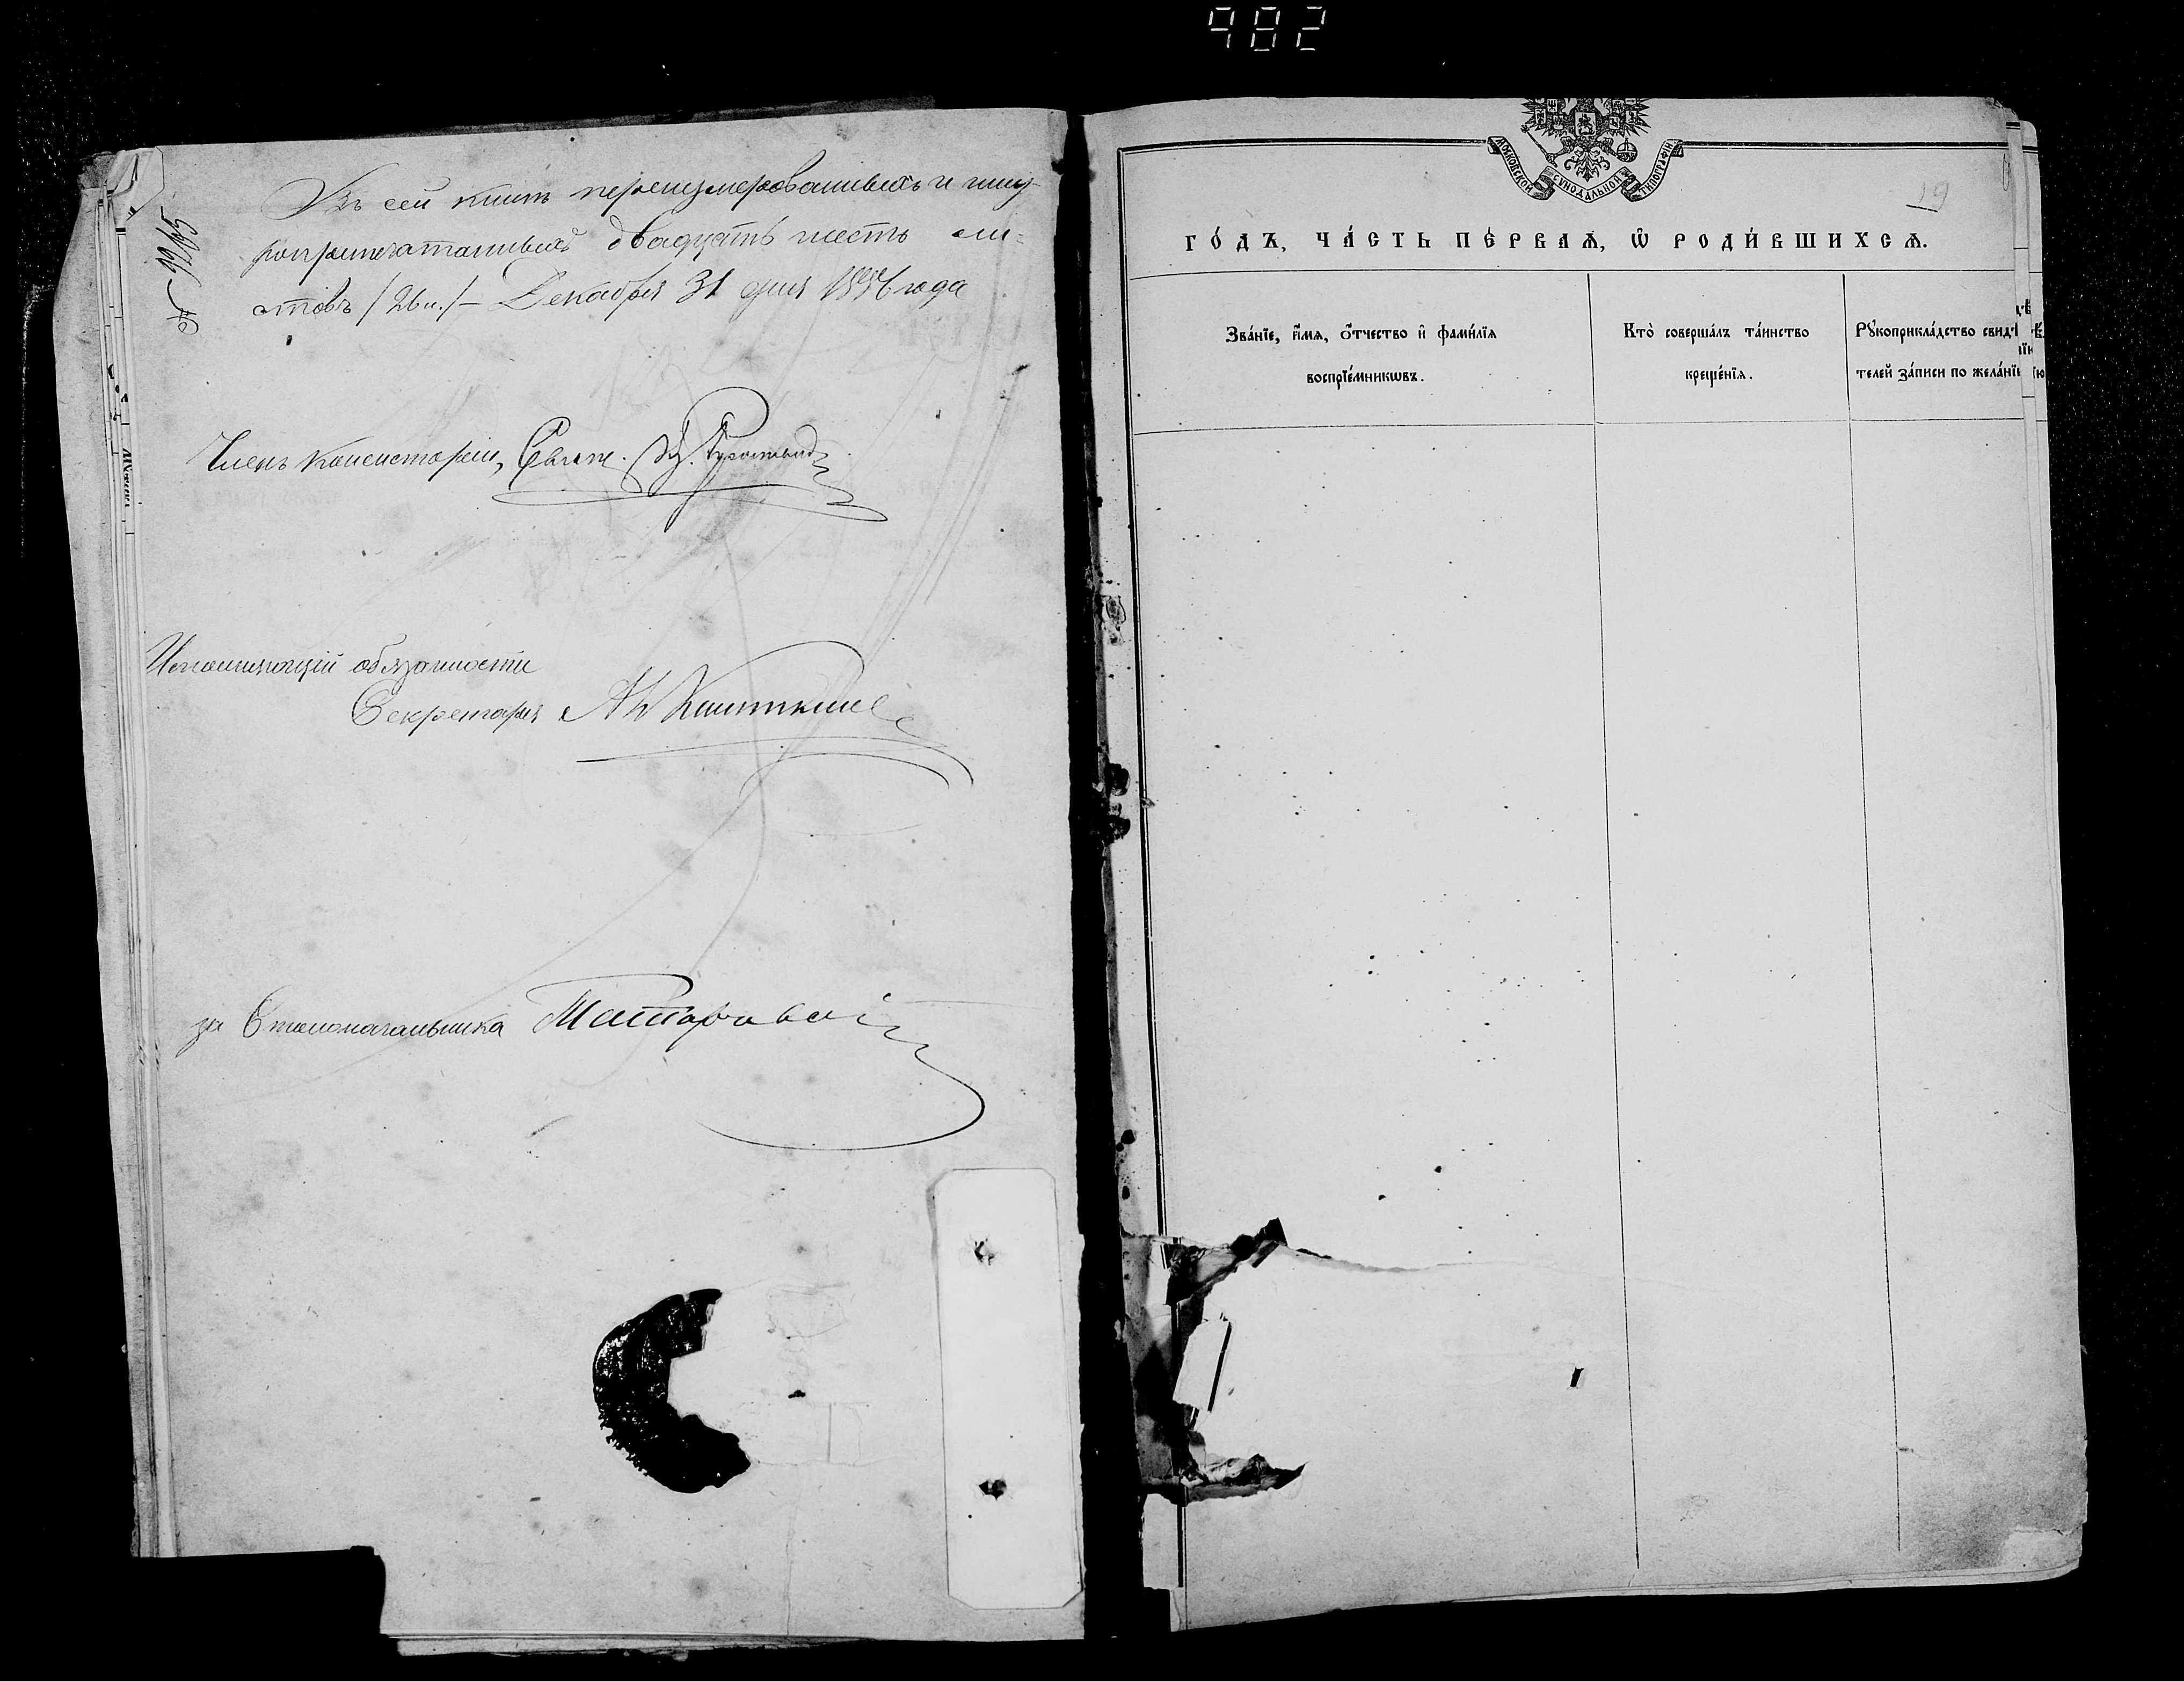 982
Въ сей книгѣ перенумерованныхъ и шну-
роприпечатанныхъ двадцать шесть ли-
стовъ / 26 л. / – Декабря 31 дня года
Членъ Консисторіи, Свящ.
Исполняющій обязанности
Секретаря
за Столоначальника
МОСКОВСКОЙ СѴНОДАЛЬНОЙ ТИПОГРАФІИ
19
ГО́ДЪ, ЧА́СТЬ ПЕ́РВАѦ, Ѡ҆ РОДИ́ВШИХСѦ.
Зва́нїе, и҆́мѧ, ѻ҆́тчество и҆ фами́лїѧ
воспрїе́мникѡвъ.
Кто̀ соверша́лъ та́инство
креще́нїѧ.
Рꙋкоприкла́дство свид
телей за́писи по жела́нї